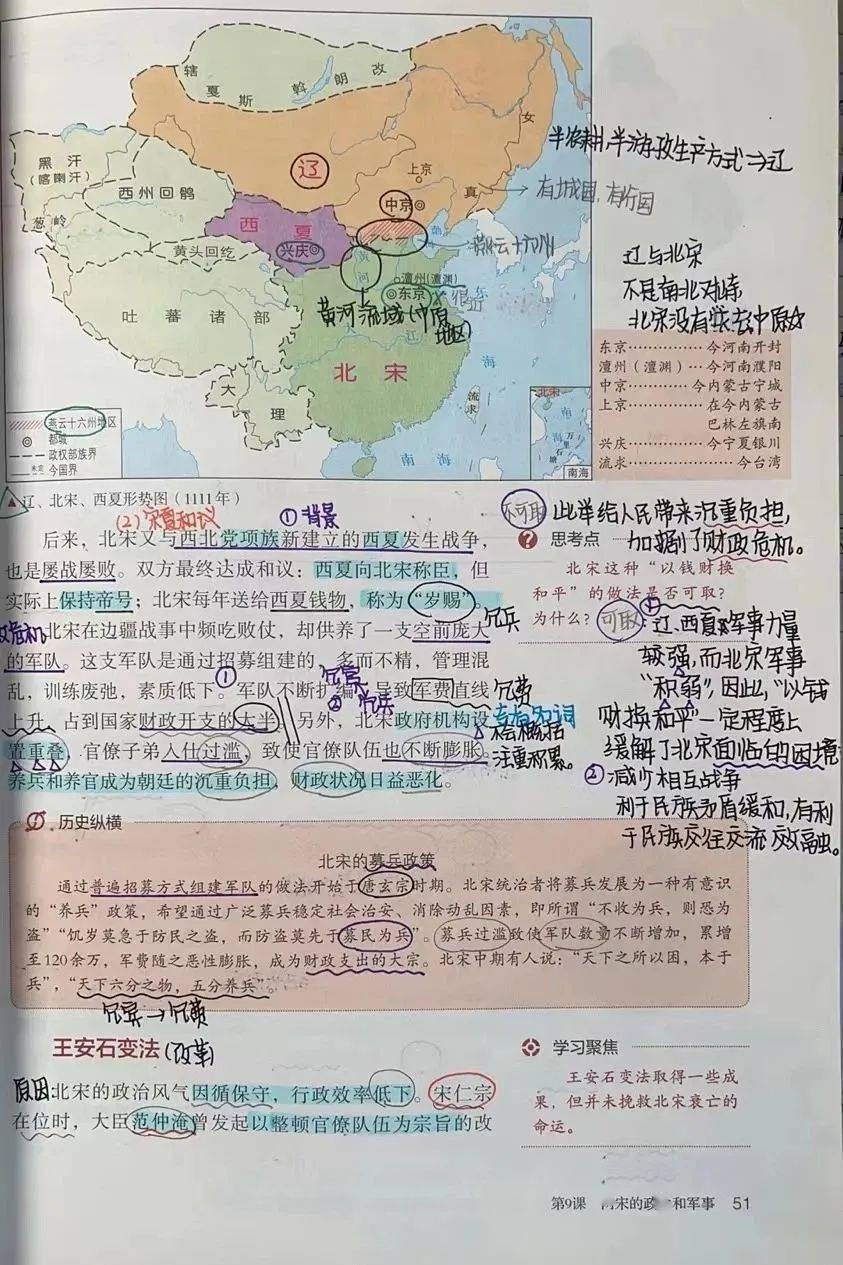 辖
戛
斯
斡
朗
改
女
半农耕、半游牧生产方式⇒辽
黑汗
(喀喇汗)
辽
上京
西州回鹘
中京
真
→有城国,有行国
葱岭
西夏
燕云十六州
黄头回纥
兴庆
黄
河
澶州(澶渊)
东京
辽与北宋
不是南北对峙
黄河流域(中原
地区)
吐蕃诸部
江
东
海
北宋
大
理
流求
东京……………今河南开封
澶州(澶渊)…今河南濮阳
中京…………今内蒙古宁城
上京…………在今内蒙古
巴林左旗南
兴庆…………今宁夏银川
流求………………今台湾
燕云十六州地区
都城
政权部族界
未定 今国界
南海
北宋
南
海
万里石塘
南海
▲辽、北宋、西夏形势图(1111年)
(2)宋夏和议
①背景
后来,北宋又与西北党项族新建立的西夏发生战争,
也是屡战屡败。双方最终达成和议:西夏向北宋称臣,但
实际上保持帝号;北宋每年送给西夏钱物,称为“岁赐”。
北宋在边疆战事中频吃败仗,却供养了一支空前庞大
冗兵
的军队。这支军队是通过招募组建的,多而不精,管理混
乱,训练废弛,素质低下。军队不断扩编,导致军费直线
①
②
冗兵
冗费
上升,占到国家财政开支的大半。另外,北宋政府机构设
置重叠,官僚子弟入仕过滥,致使官僚队伍也不断膨胀。
注重积累。
养兵和养官成为朝廷的沉重负担,财政状况日益恶化。
不可取
此举给人民带来沉重负担,
加剧了财政危机。
? 思考点
北宋这种“以钱财换
和平”的做法是否可取?
为什么?
可取
①
辽、西夏军事力量
较强,而北宋军事
“积弱”,因此,“以钱
财换和平”一定程度上
缓解了北宋面临的困境
②减少相互战争
利于民族矛盾缓和,有利
于民族交往交流交融。
历史纵横
北宋的募兵政策
通过普遍招募方式组建军队的做法开始于唐玄宗时期。北宋统治者将募兵发展为一种有意识
的“养兵”政策,希望通过广泛募兵稳定社会治安、消除动乱因素,即所谓“不收为兵,则恐为
盗”“饥岁莫急于防民之盗,而防盗莫先于募民为兵”。募兵过滥致使军队数量不断增加,累增
至120余万,军费随之恶性膨胀,成为财政支出的大宗。北宋中期有人说:“天下之所以困,本于
兵”,“天下六分之物,五分养兵”。
冗兵→冗费
王安石变法(改革)
原因:北宋的政治风气因循保守,行政效率低下。宋仁宗
在位时,大臣范仲淹曾发起以整顿官僚队伍为宗旨的改
学习聚焦
王安石变法取得一些成
果,但并未挽救北宋衰亡的
命运。
第9课 宋的政 和军事 51